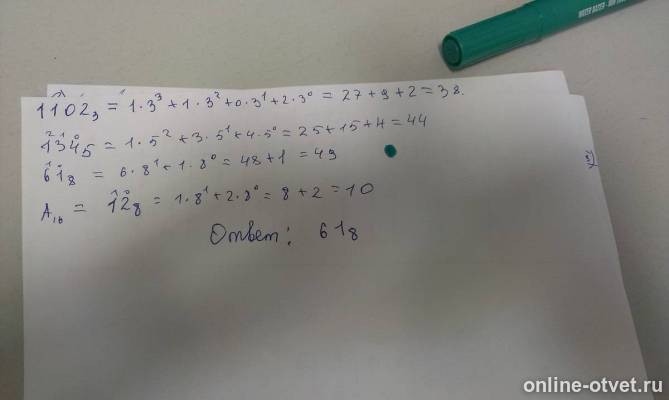 1102₃ = 1·3³+1·3²+0·3¹+2·3⁰ = 27+9+2=38.
1²3¹4⁰₅ = 1·5²+3·5¹+4·5⁰=25+15+4=44
6¹1⁰₈ = 6·8¹+1·8⁰=48+1=49
A₁₆ = 1¹2⁰₈ = 1·8¹+2·8⁰=8+2=10
Ответ: 61₈
online-otvet.ru